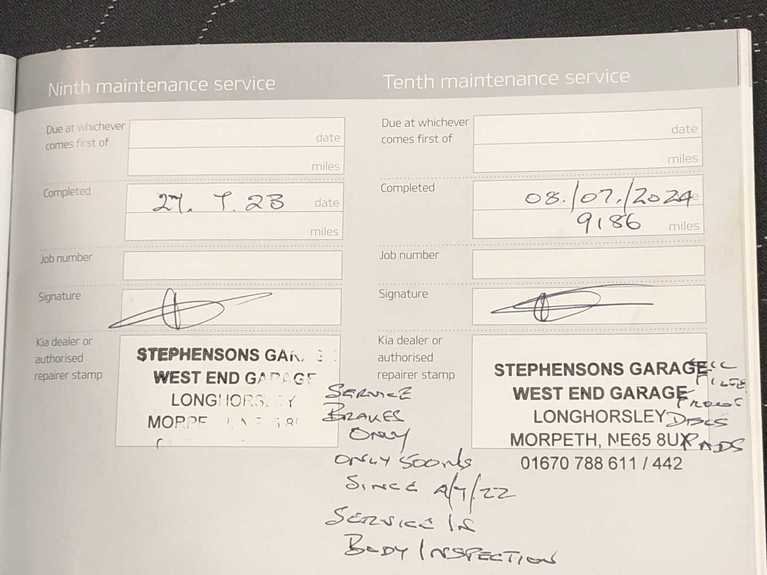 Ninth maintenance service
Due at whichever
comes first of
date
miles
Completed
27. 7. 23 date
miles
Job number
Signature
Kia dealer or
authorised
repairer stamp
STEPHENSONS GAR
WEST END GARAGE
LONGHORSLEY
SERVICE
BRAKES
ONLY
ONLY 500mls
SINCE 4/7/22
SERVICE IN
BODY INSPECTION
Tenth maintenance service
Due at whichever
comes first of
date
miles
Completed
08./07./2024
9186 miles
Job number
Signature
Kia dealer or
authorised
repairer stamp
STEPHENSONS GARAGE
WEST END GARAGE
LONGHORSLEY
MORPETH, NE65 8UX
01670 788 611 / 442
DISCS
PADS